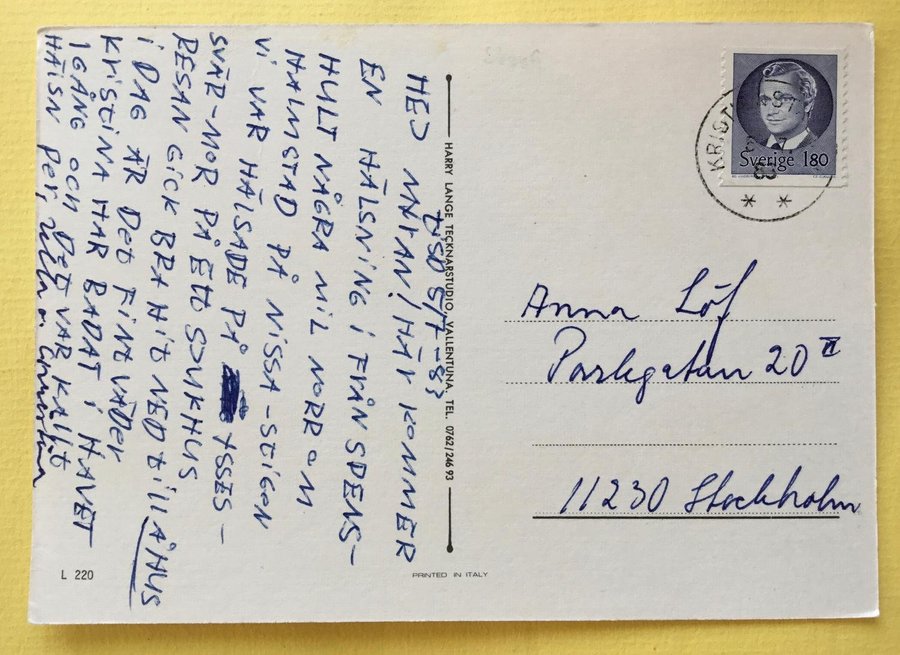 TISD 5/7-83
HEJ HÄR KOMMER
EN HÄLSNING I FRÅN SPENS-
HULT NÅGRA MIL NORR OM
HALMSTAD PÅ NISSA-STIGEN
VI VAR HÄLSADE PÅ
SVÄR-MOR PÅ ETT SJUKHUS
RESAN GICK BRA HIT NED TILL ÅHUS
I DAG ÄR DET FINT VÄDER
KRISTINA HAR BADAT I HAVET
1 GÅNG OCH DET VAR KALLT
HÄLSN Per,
L 220
HARRY LANGE TECKNARSTUDIO, VALLENTUNA, TEL. 0762/246 93
PRINTED IN ITALY
Sverige 180
KRIST
83
Anna Löf
Parkgatan 20 III
11230 Stockholm